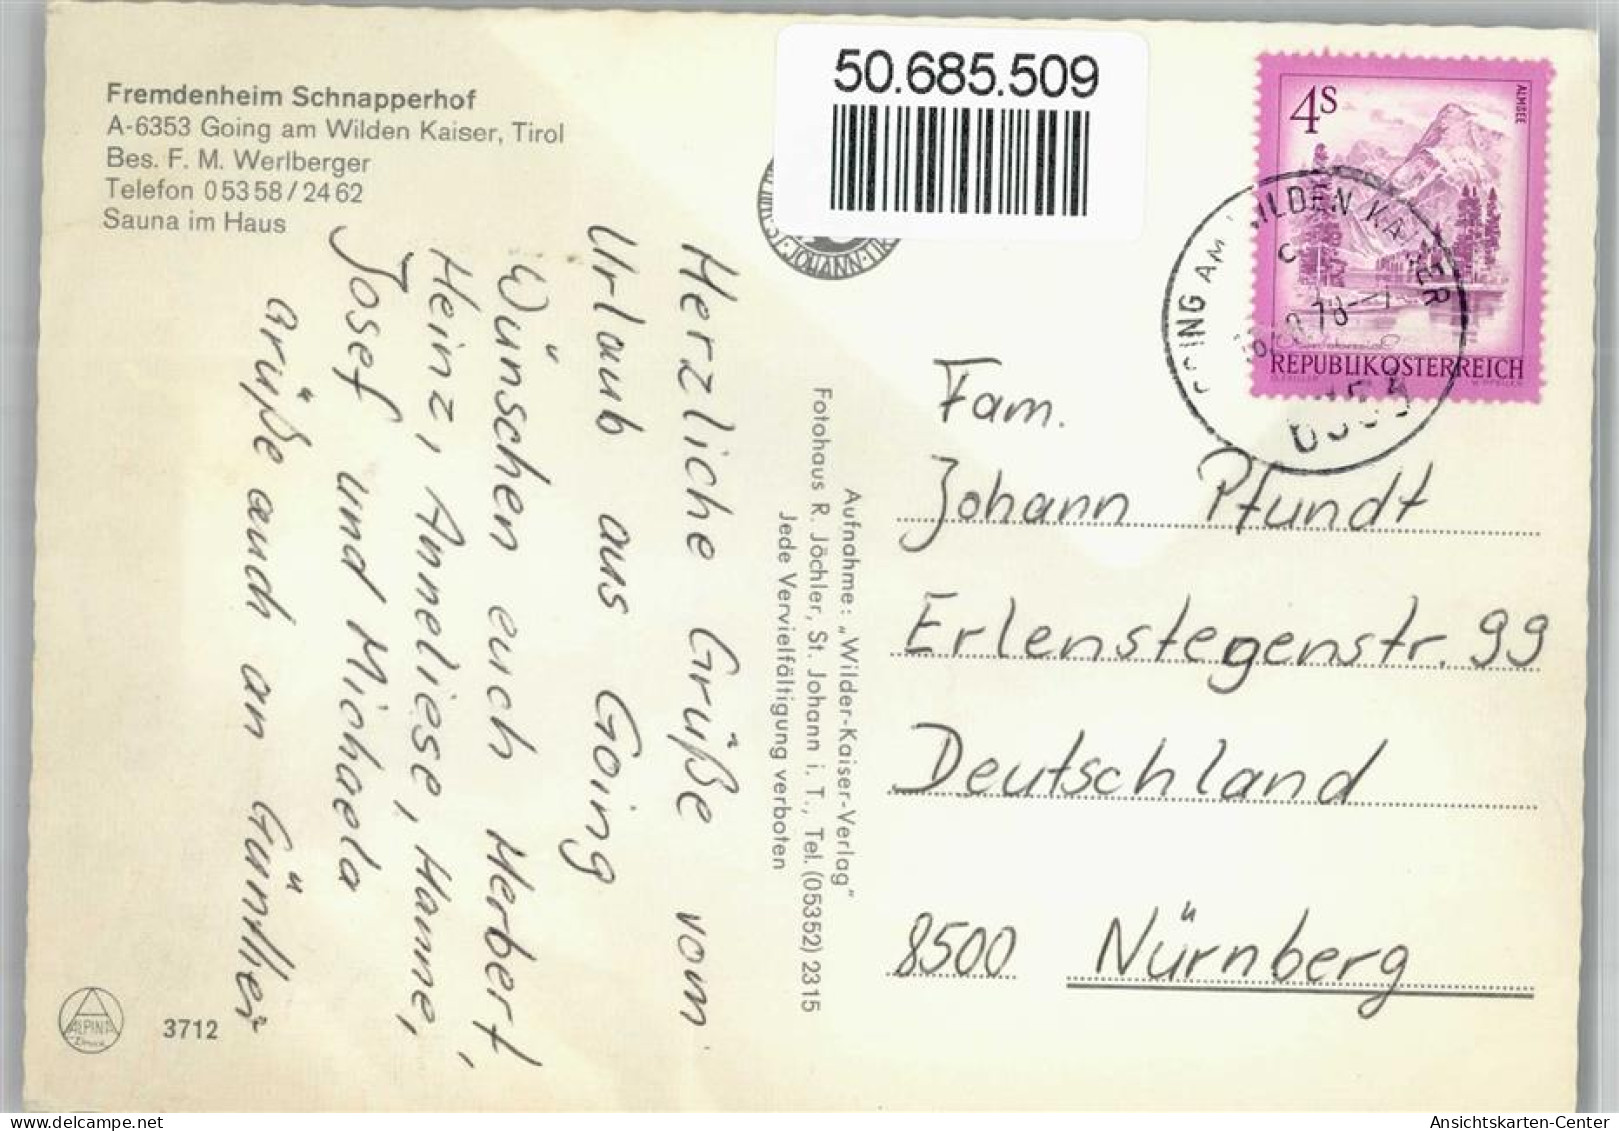 Fremdenheim Schnapperhof
A-6353 Going am Wilden Kaiser, Tirol
Bes. F. M. Werlberger
Telefon 05358/2462
Sauna im Haus
50.685.509
4S
ALMSEE
REPUBLIK ÖSTERREICH
GOING AM WILDEN KAISER
78
ST. JOHANN
Herzliche Grüße vom
Urlaub aus Going
Wünschen euch Herbert,
Heinz, Anneliese, Hanne,
Josef und Michaela
Grüße auch an Günther
Aufnahme: „Wilder-Kaiser-Verlag"
Fotohaus R. Jöchler, St. Johann i. T., Tel. (05352) 2315
Jede Vervielfältigung verboten
Fam.
Johann Pfundt
Erlenstegenstr. 99
Deutschland
8500 Nürnberg
ALPINA
Druck
3712
Ansichtskarten-Center